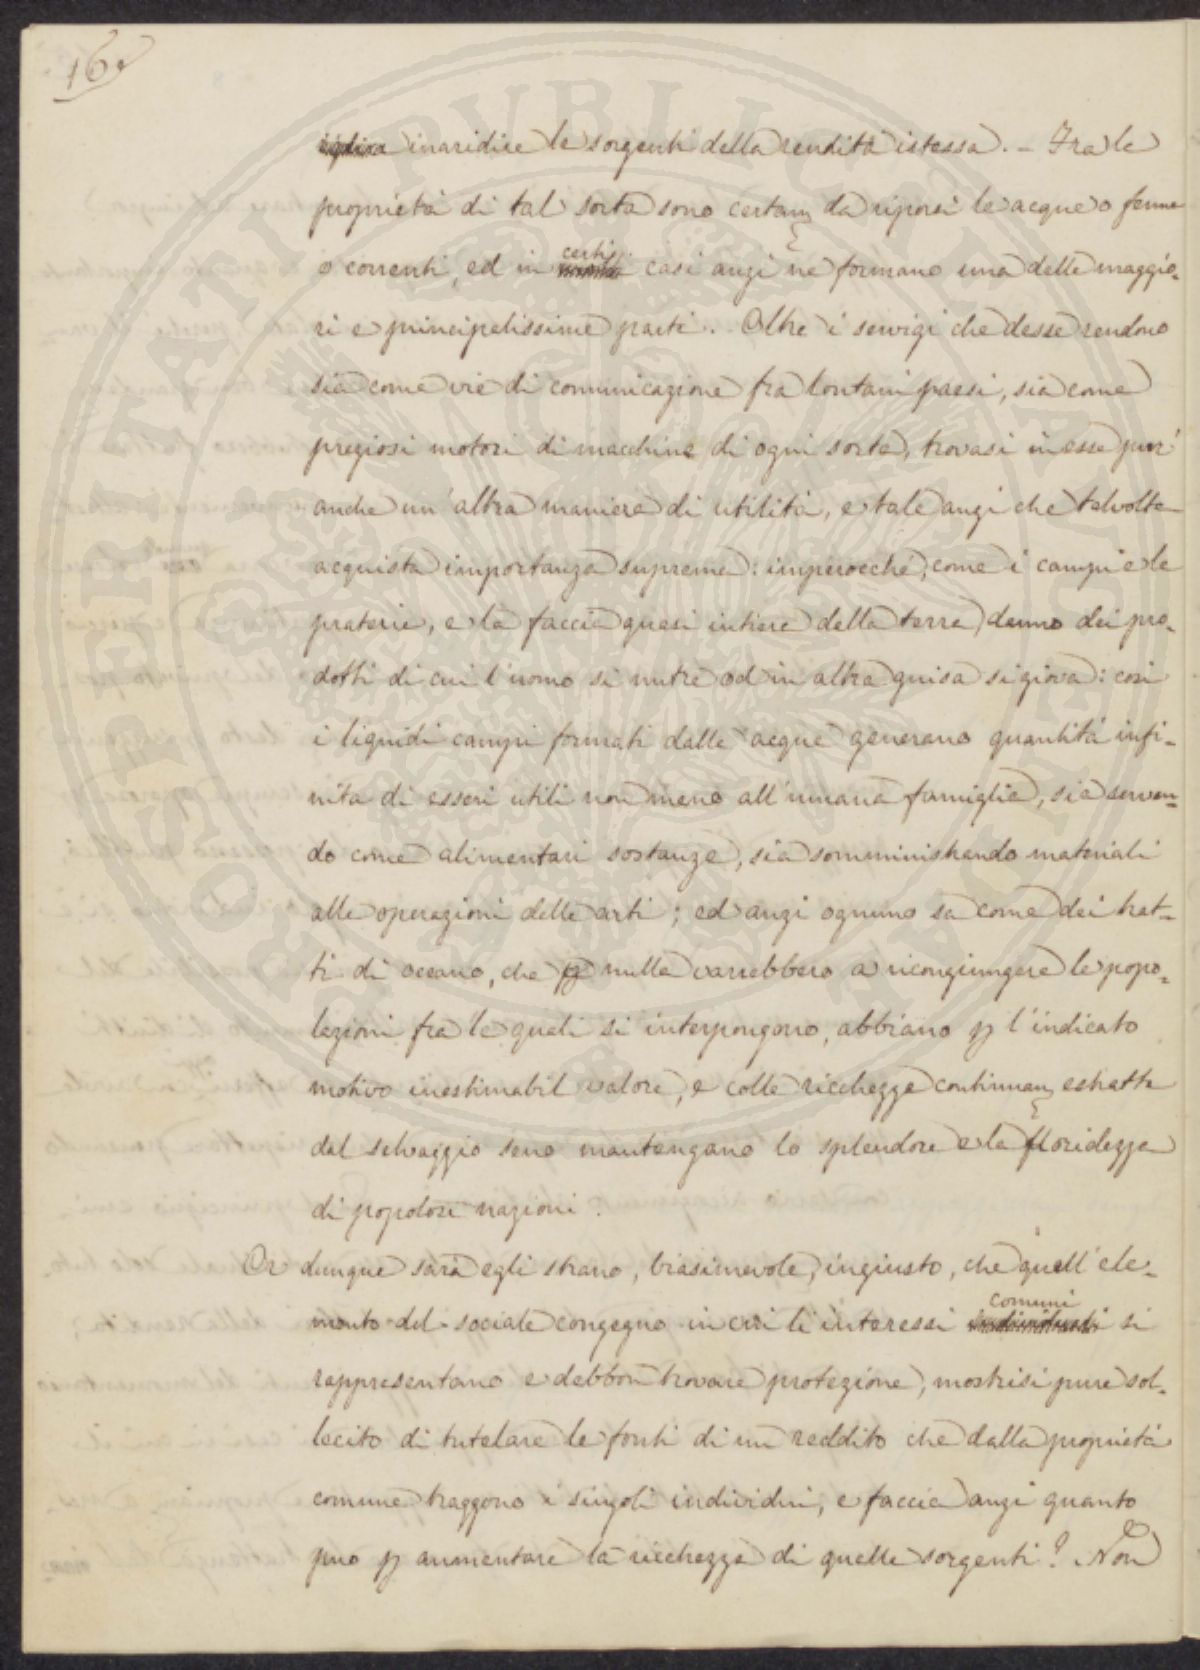 16.
inaridire le sorgenti della rendita istessa. – Fra le
proprietà di tal sorta sono certam da riporsi le acque o ferme
certi
o correnti, ed in casi anzi ne formano una delle maggio-
ri e principalissime parti. Oltre i servigi che desse rendono
sia come vie di comunicazione fra lontani paesi, sia come
preziosi motori di macchine di ogni sorta, trovasi in esse pur
anche un'altra maniera di utilità, e tale anzi che talvolta
acquista importanza suprema: imperocché, come i campi e le
praterie, e la faccia quasi intiera della terra, danno dei pro-
dotti di cui l'uomo si nutre od in altra guisa si giova: così
i liquidi campi formati dalle acque generano quantità infi-
nita di esseri utili non meno all'umana famiglia, sia serven-
do come alimentari sostanze, sia somministrando materiali
alle operazioni delle arti; ed anzi ognuno sa come dei trat-
ti di oceano, che nulla varrebbero a ricongiungere le popo-
lazioni fra le quali si interpongono, abbiano p l'indicato
motivo inestimabil valore, e colle ricchezze continuam estratte
dal selvaggio seno mantengano lo splendore e la floridezza
di popolose nazioni.
Or dunque sarà egli strano, biasimevole, ingiusto, che quell'ele-
comuni
mento del sociale congegno in cui li interessi individuali si
rappresentano e debbon trovare protezione, mostrisi pure sol-
lecito di tutelare le fonti di un reddito che dalla proprietà
comune traggono i singoli individui, e faccia anzi quanto
può p aumentare la ricchezza di quelle sorgenti? Non
PROSPERITATI PUBLICAE AUGENDAE